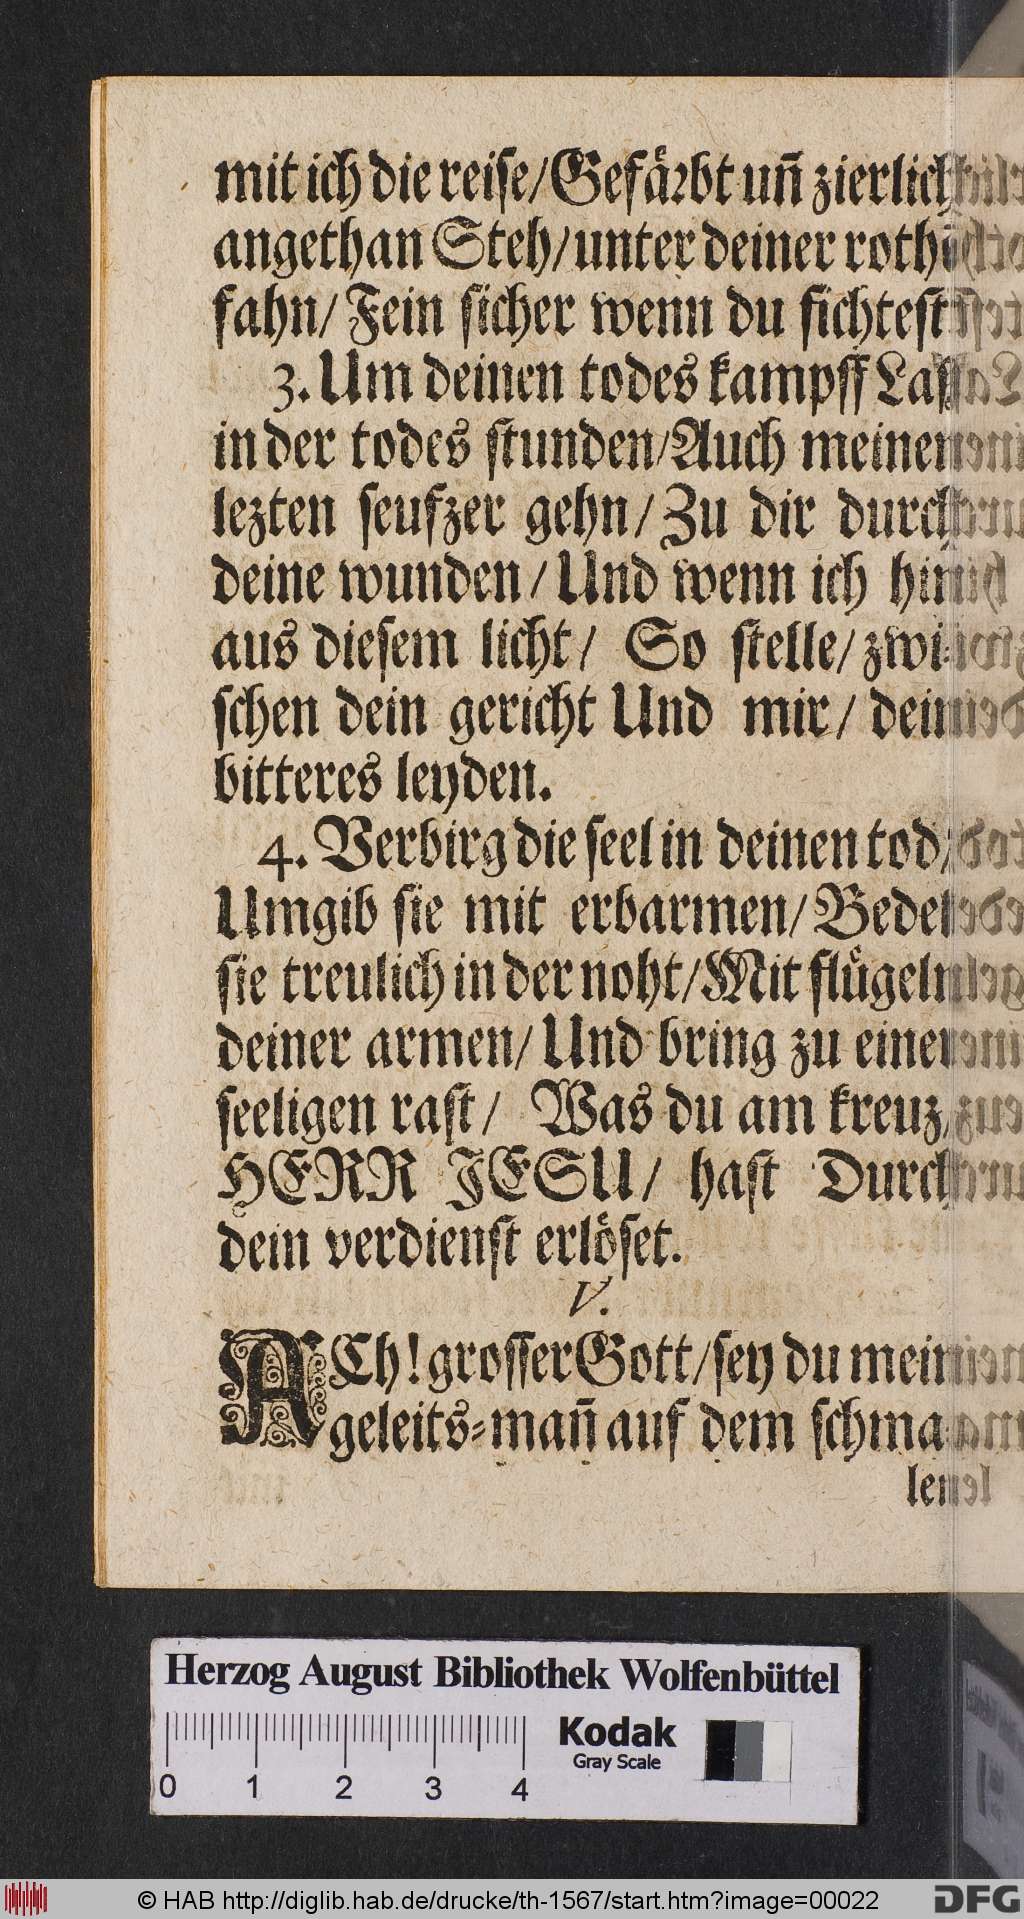 mit ich die reiſe/Gefaͤꝛbt un̄ zierlich
angethan Steh/unter deiner rothē
fahn/Fein ſicher wenn du fichteſt
3. Um deinen todes kampff Laſſ
in der todes ſtunden/Auch meinen
lezten ſeufzer gehn/Zu dir durch
deine wunden/Und wenn ich hin
aus dieſem licht/ So ſtelle/zwi⸗
ſchen dein gericht Und mir/ dein
bitteres leyden.
4. Verbirg die ſeel in deinen tod/
Umgib ſie mit erbarmen/Bedek
ſie treulich in der noht/Mit fluͤgeln
deiner armen/Und bring zu einer
ſeeligen raſt/ Was du am kreuz/
HERR JESU/ haſt Durch
dein verdienſt erloͤſet.
V.
ACh! groſſer Gott/ſey du mein
geleits⸗man̄ auf dem ſchma⸗
len
Herzog August Bibliothek Wolfenbüttel
Kodak
Gray Scale
0 1 2 3 4
© HAB http://diglib.hab.de/drucke/th-1567/start.htm?image=00022
DFG